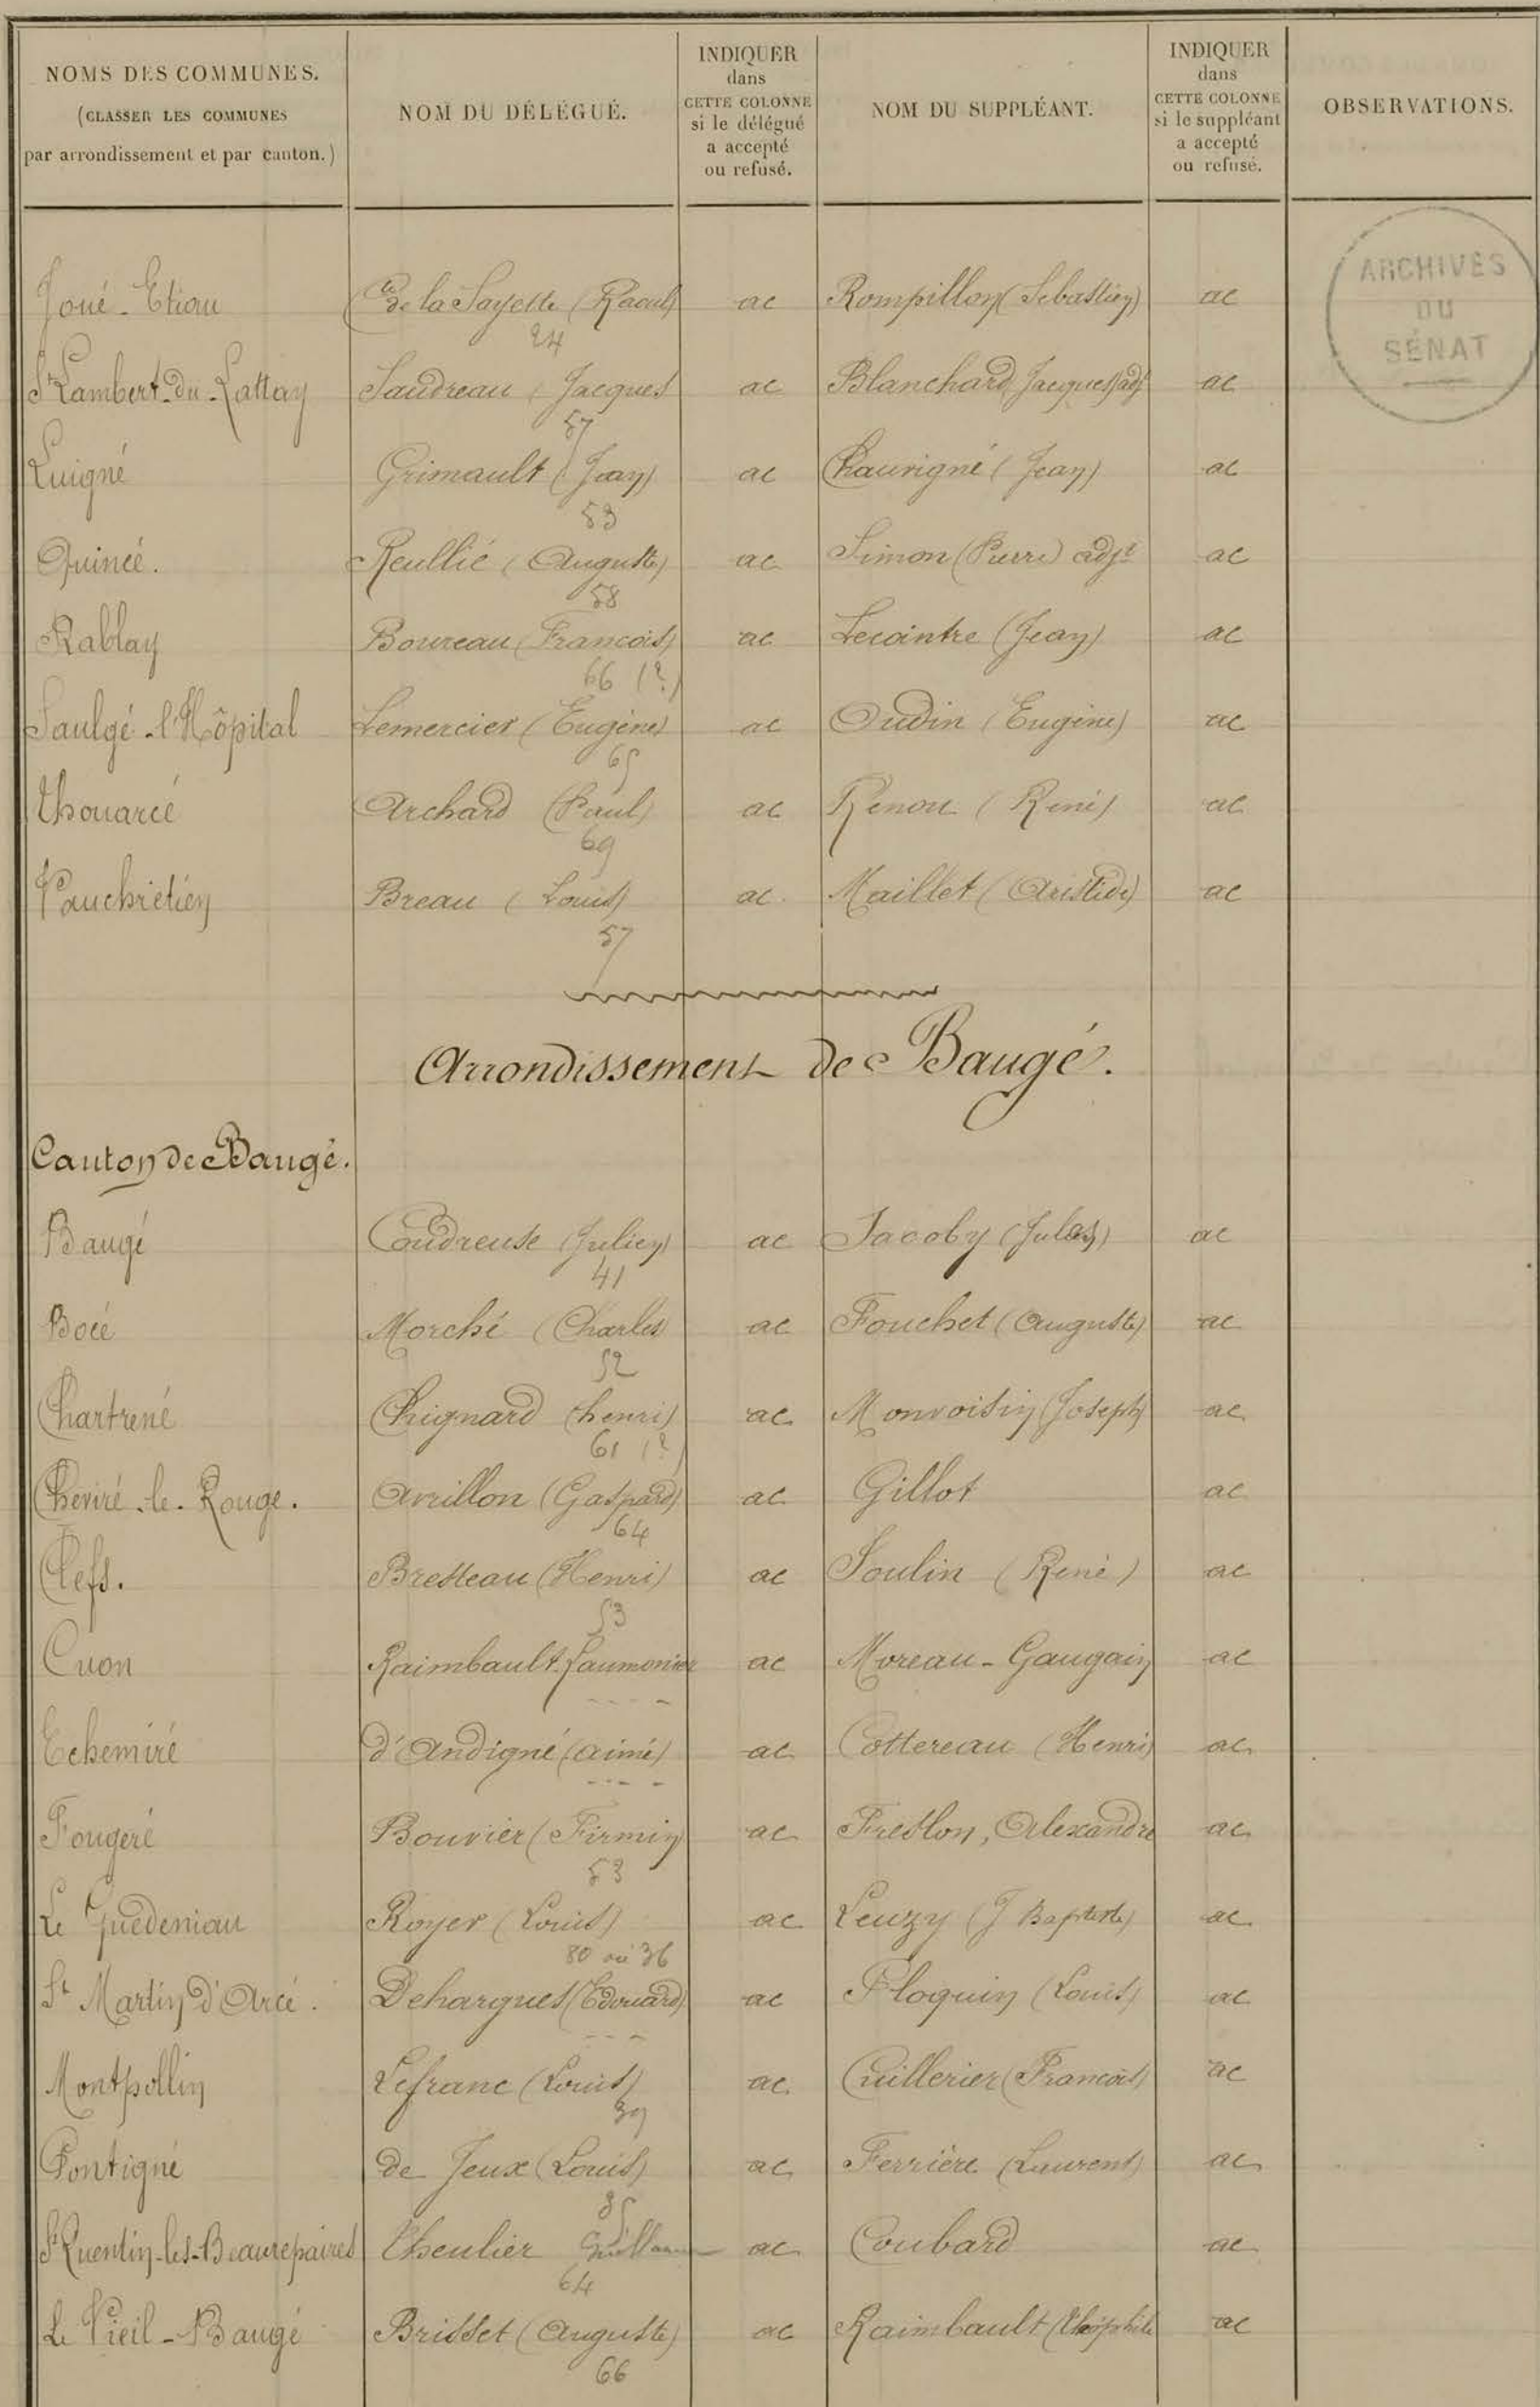 NOMS DES COMMUNES.
(CLASSER LES COMMUNES
par arrondissement et par canton.)
NOM DU DÉLÉGUÉ.
INDIQUER
dans
CETTE COLONNE
si le délégué
a accepté
ou refusé.
NOM DU SUPPLÉANT.
INDIQUER
dans
CETTE COLONNE
si le suppléant
a accepté
ou refusé.
OBSERVATIONS.
ARCHIVES
DU
SÉNAT
Joué-Etiau Cte de la Sayette (Raoul) ac Rompillon (Sebastien) ac
24
St Lambert-du-Lattay Saudreau (Jacques ac Blanchard Jacques) adjt ac
57
Luigné Grimault (Jean) ac Chauvigné (Jean) ac
53
Quincé. Reullié (Auguste) ac Simon (Pierre) adjt ac
58
Rablay Boureau (François) ac Lecointre (Jean) ac
66 (?)
Saulgé-l'Hôpital Lemercier (Eugène) ac Oudin (Eugène) ac
65
Thouarcé Archard (Paul) ac Renou (René) ac
69
Vauchrétien Breau (Louis) ac. Maillet (Aristide) ac
57
Arrondissement de Baugé.
Canton de Baugé.
Baugé Coudreuse (Julien) ac Jacoby (Jules) ac
41
Bocé Morché (Charles) ac Fouchet (Auguste) ac
52
Chartrené Chignard (henri) ac Monvoisin (Joseph) ac
61 (?)
Cheviré-le-Rouge. Avrillon (Gaspard) ac Gillot ac
64
Clefs. Bresteau (Henri) ac Soulin (René) ac
53
Cuon Raimbault-Jaumonier ac Moreau-Gaugain ac
Echemiré d'Andigné (aimé) ac Cottereau (Henri) ac
Fougeré Bouvier (Firmin) ac Freslon, Alexandre ac
53
Le Guédeniau Royer (Louis) ac Leuzy (J Baptiste) ac
80 ou 36
St Martin d'Arcé. Dehargues (Edouard) ac Floquin (Louis) ac
Montpollin Lefranc (Louis) ac Cuillerier (François) ac
39
Pontigné de Jeux (Louis) ac Ferrière (Laurent) ac
35
St Quentin-les-Beaurepaires Theulier Guillaume ac Coubard ac
64
Le Vieil-Baugé Brisset (Auguste) ac Raimbault (Théophile ac
66